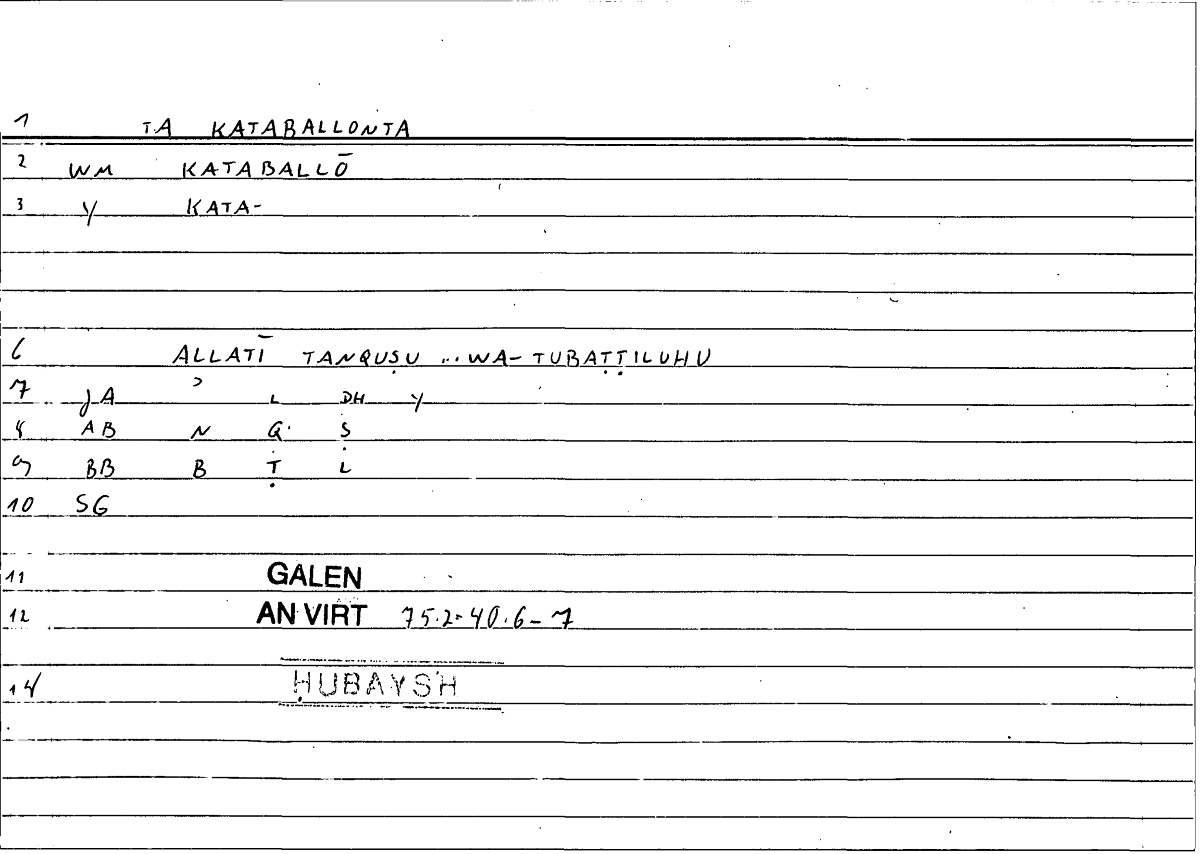 1 TA KATABALLONTA
2 WM KATABALLŌ
3 Y KATA-
6 ALLATĪ TANQUṢU ... WA-TUBAṬṬILUHU
7 JA ʾ L DH Y
8 AB N Q Ṣ
9 BB B Ṭ L
10 SG
11 GALEN
12 AN VIRT 75.2=40.6-7
14 ḤUBAYSH